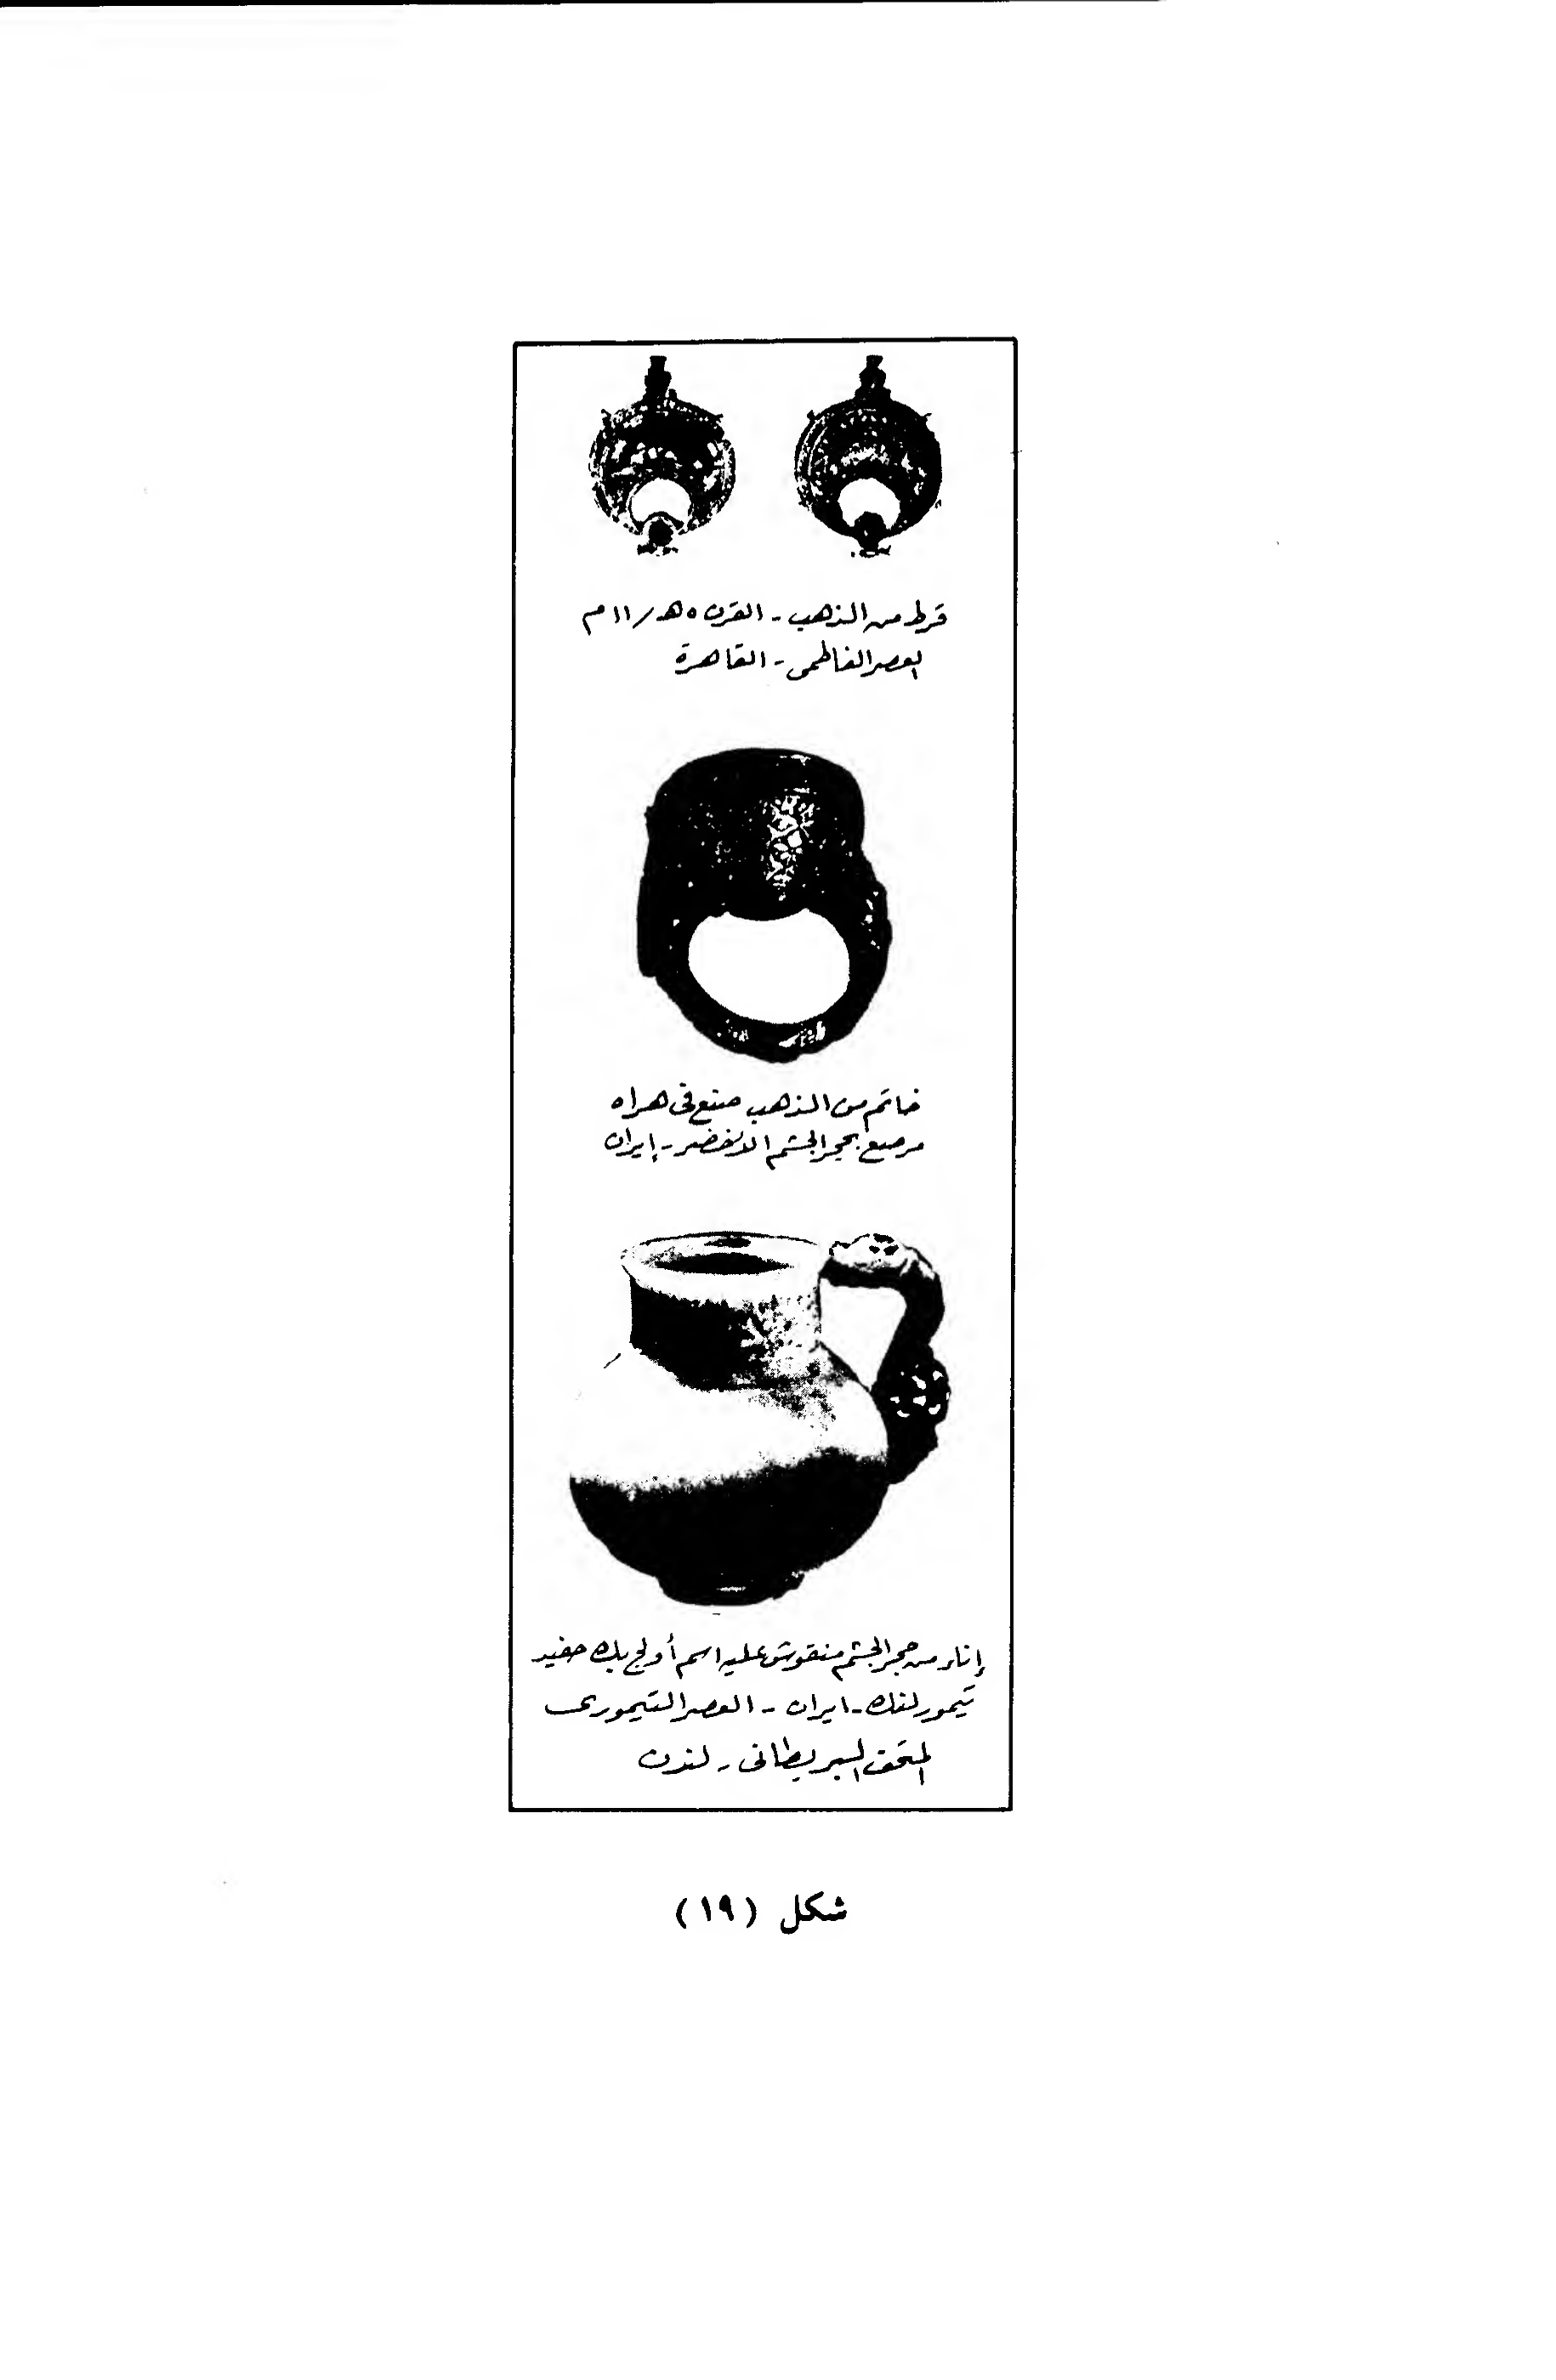 قرط من الذهب - القرن ٥هـ/١١م
العصر الفاطمى - القاهرة
خاتم من الذهب صنع فى هراه
مرصع بحجر الجشم الأخضر - إيران
إناء من حجر الجشم منقوش عليه اسم أولج بك حفيد
تيمورلنك - ايران - العصر التيمورى
المتحف البريطانى - لندن
شكل (١٩)